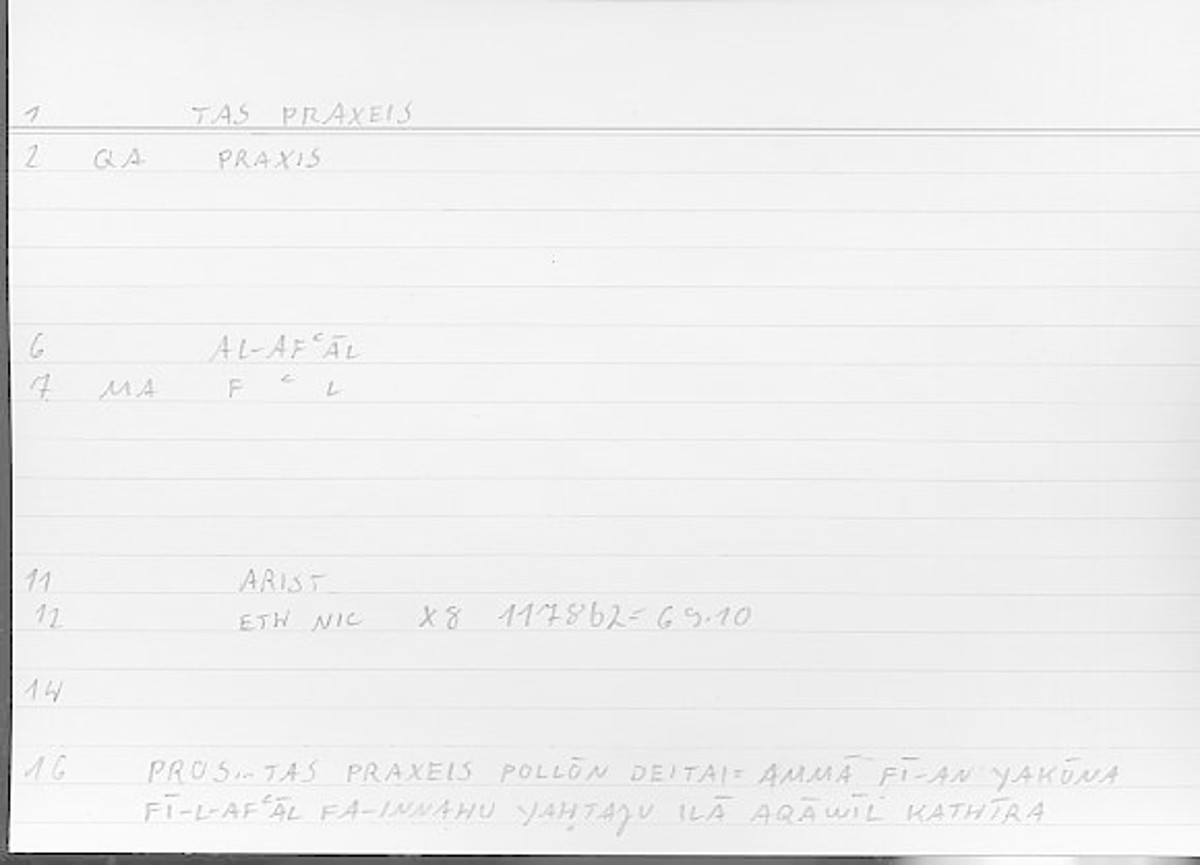 1 TAS PRAXEIS
2 QA PRAXIS
6 AL-AFᶜĀL
7 MA F ᶜ L
11 ARIST
12 ETH NIC X8 1178b2= 69.10
14
16 PROS..-TAS PRAXEIS POLLŌN DEITAI= AMMĀ FĪ-AN YAKŪNA
FĪ-L-AFᶜĀL FA-INNAHU YAḤTAJU ILĀ AQĀWĪL KATHĪRA